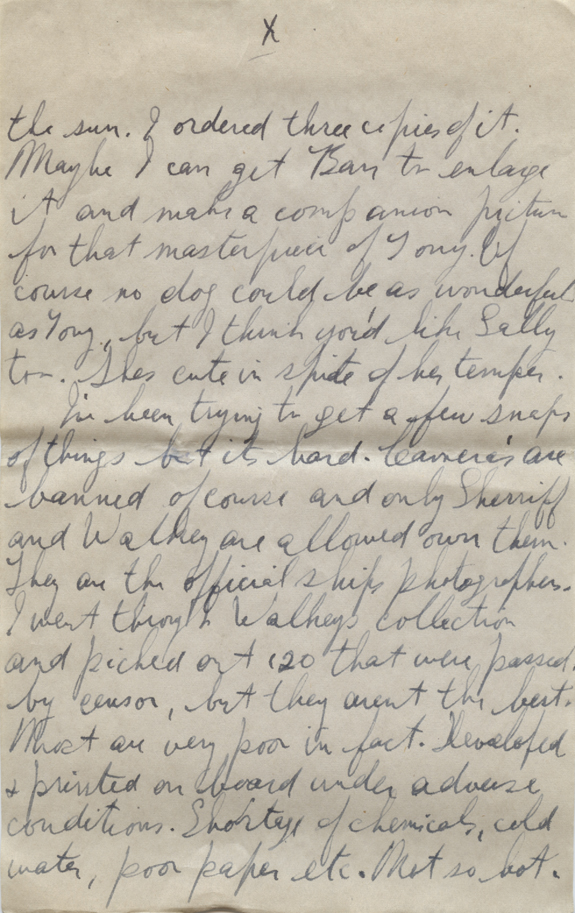 X
the sun. I ordered three copies of it.
Maybe I can get Barr to enlarge
it and make a companion picture
for that masterpiece of Tony. Of
course no dog could be as wonderful
as Tony, but I think you'd like Sally
too. Shes cute in spite of her temper.
I've been trying to get a few snaps
of things but its hard. Camera's are
banned of course and only Sherriff
and Walkey are allowed own them.
They are the official ships photographers.
I went through Walkeys collection
and picked out 120 that were passed
by censor, but they arent the best.
Most are very poor in fact. Developed
& printed on board under adverse
conditions. Shortage of chemicals, cold
water, poor paper etc. Not so hot.